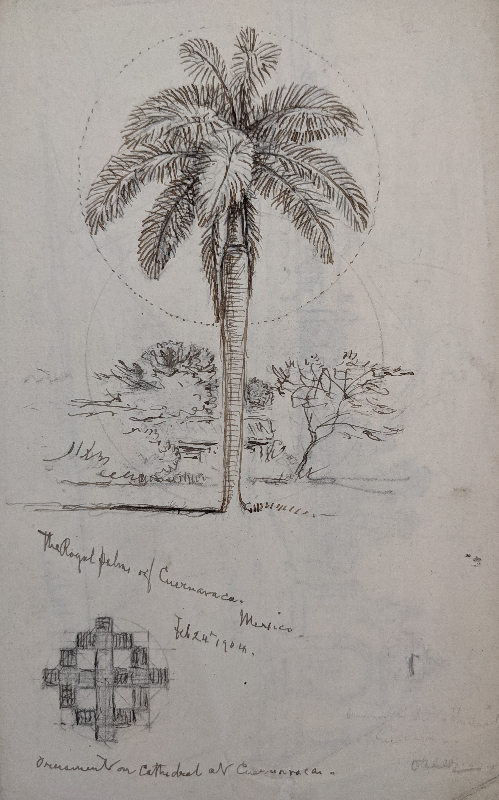 The Royal palms of Cuernavaca.
Mexico.
Feb 24th 1904.
Ornament on Cathedral at Cuernavaca.